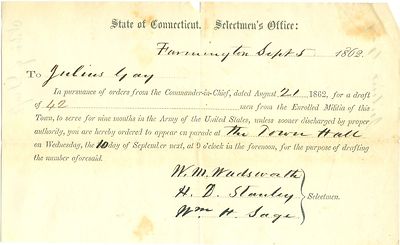 State of Connecticut. Selectmen's Office:
Farmington Sept 5 1862.
To Julius Gay
In pursuance of orders from the Commander-in-Chief, dated August 21 1862, for a draft
of 42 men from the Enrolled Militia of this
Town, to serve for nine months in the Army of the United States, unless sooner discharged by proper
authority, you are hereby ordered to appear on parade at The Town Hall
on Wednesday, the 10 day of September next, at 9 o'clock in the forenoon, for the purpose of drafting
the number aforesaid.
W. M. Wadsworth
H. D. Stanley
Wm H. Sage
Selectmen.